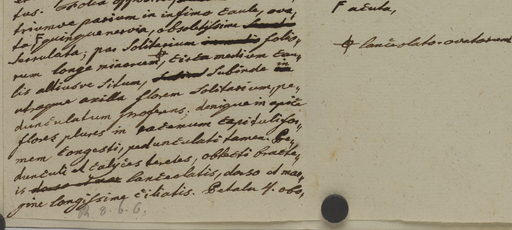 triumve parium in infimo caule, ova,
ta, quinquenervia, obsoletissime
serrulata; par solitarium foliо,
rum longe minorum, circa medium cau,
lis altiusve situm, subinde in
utraque axilla florem solitarium, pe,
dunculatum proferens; denique in apice
flores plures in racemum capitulifor,
mem congesti, pedunculati tamen. Pe,
dunculi et calyces teretes, obtecti bracte,
is lanceolatis, dorso et mar,
gine longissime ciliatis. Petala 4. obo,
R 8. 6. 6.
Facula,
lanceolato-ovatorum